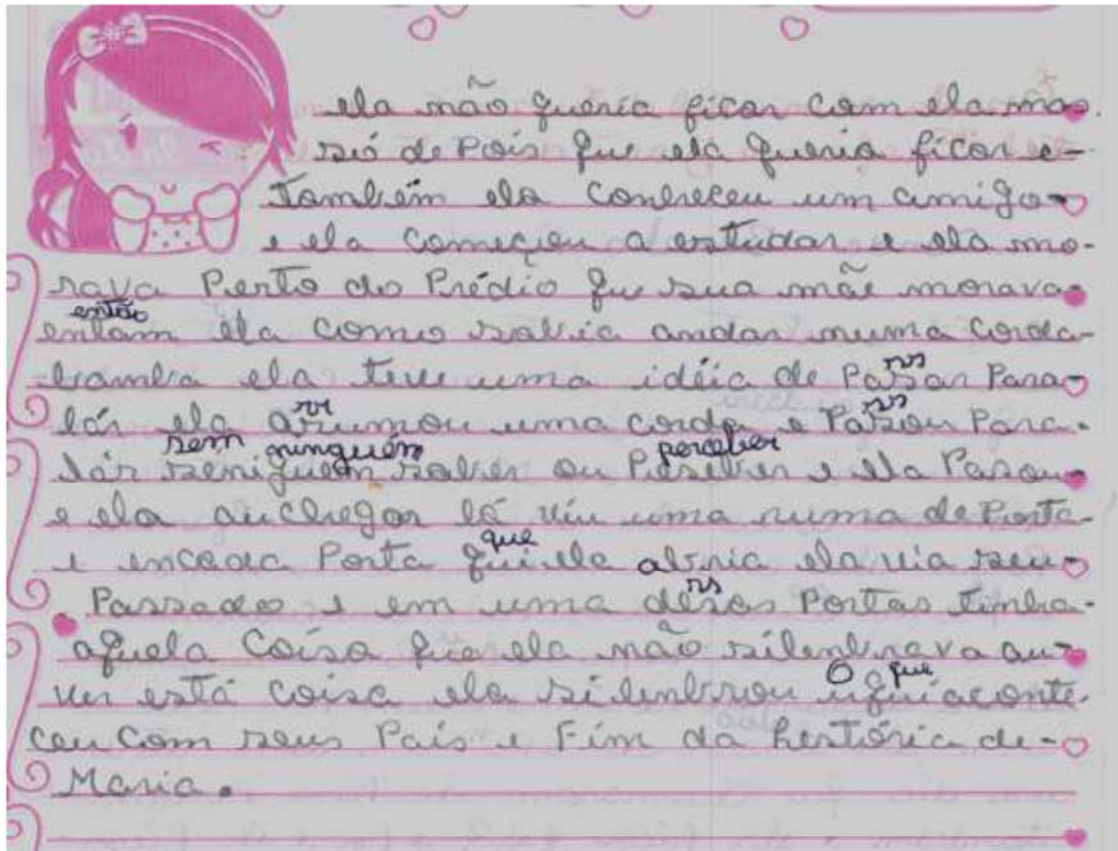 ela não queria ficar com ela mas.
sió de Pois que ela queria ficar e-
também ela conheceu um amigo
e ela começou a estudar e ela mo-
rava Perto do Prédio qu sua mãe morava
então
entam ela como sabia andar numa corda-
bamba ela teve uma idéia de Pasar Para
ss
lár ela arumou uma corda e Pasou Para.
rr ss
sem ninguém perceber
lár seniguem saber ou Peseber e ela Pasou
e ela auchegar lá viu uma ruma de Porta-
e encada Porta qui ela abria ela via seu
que
Passado e em uma desas Portas tinha-
ss
aquela Coisa que ela não silenbrava au
ver está coisa ela silenbrou uquiaconte
O que
ceu com seus Pais e Fim da hestória de-
Maria.